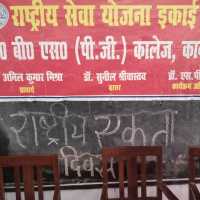 राष्ट्रीय सेवा योजना इकाई
० बी० एस० (पी.जी.) कालेज, का
अनिल कुमार मिश्रा
डॉ. सुनील श्रीवास्तव
डॉ. एस.
प्राचार्य
कार्यक्रम
राष्ट्रीय एकता
दिवस